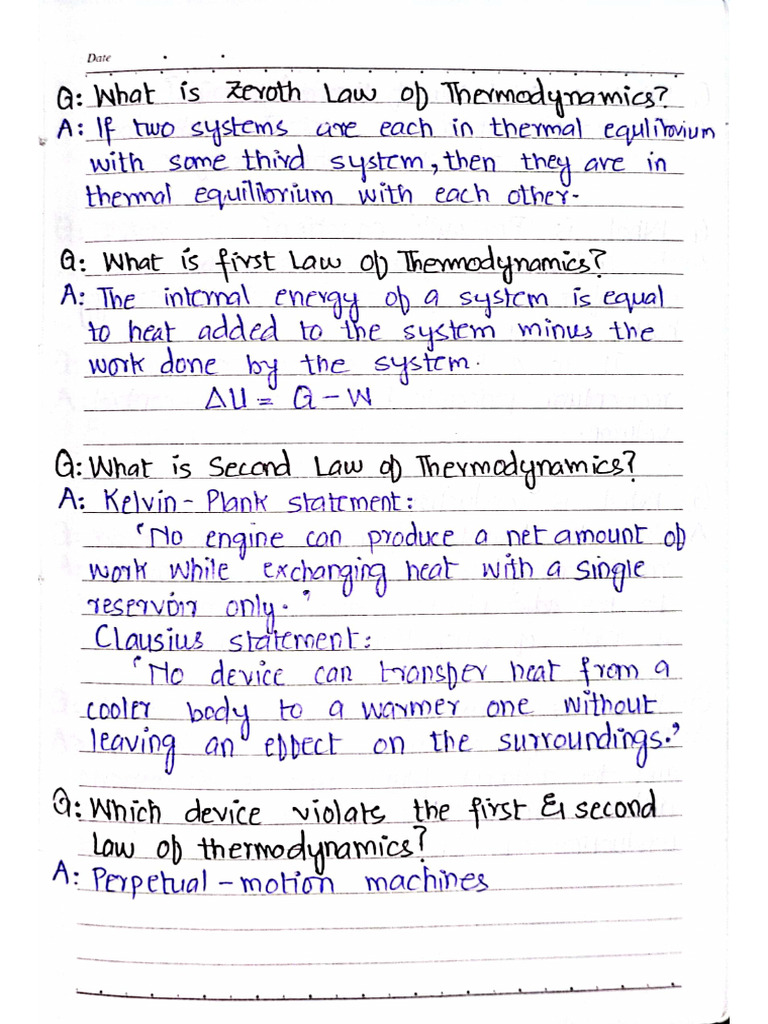 Date
Q: What is Zeroth Law of Thermodynamics?
A: If two systems are each in thermal equlibrium
with some third system, then they are in
thermal equilibrium with each other.
Q: What is first Law of Thermodynamics?
A: The internal energy of a system is equal
to heat added to the system minus the
work done by the system.
ΔU = Q - W
Q: What is Second Law of Thermodynamics?
A: Kelvin - Plank statement:
'No engine can produce a net amount of
work while exchanging heat with a single
reservoir only.'
Clausius statement:
'No device can transfer heat from a
cooler body to a warmer one without
leaving an effect on the surroundings.'
Q: Which device violats the first & second
law of thermodynamics?
A: Perpetual - motion machines